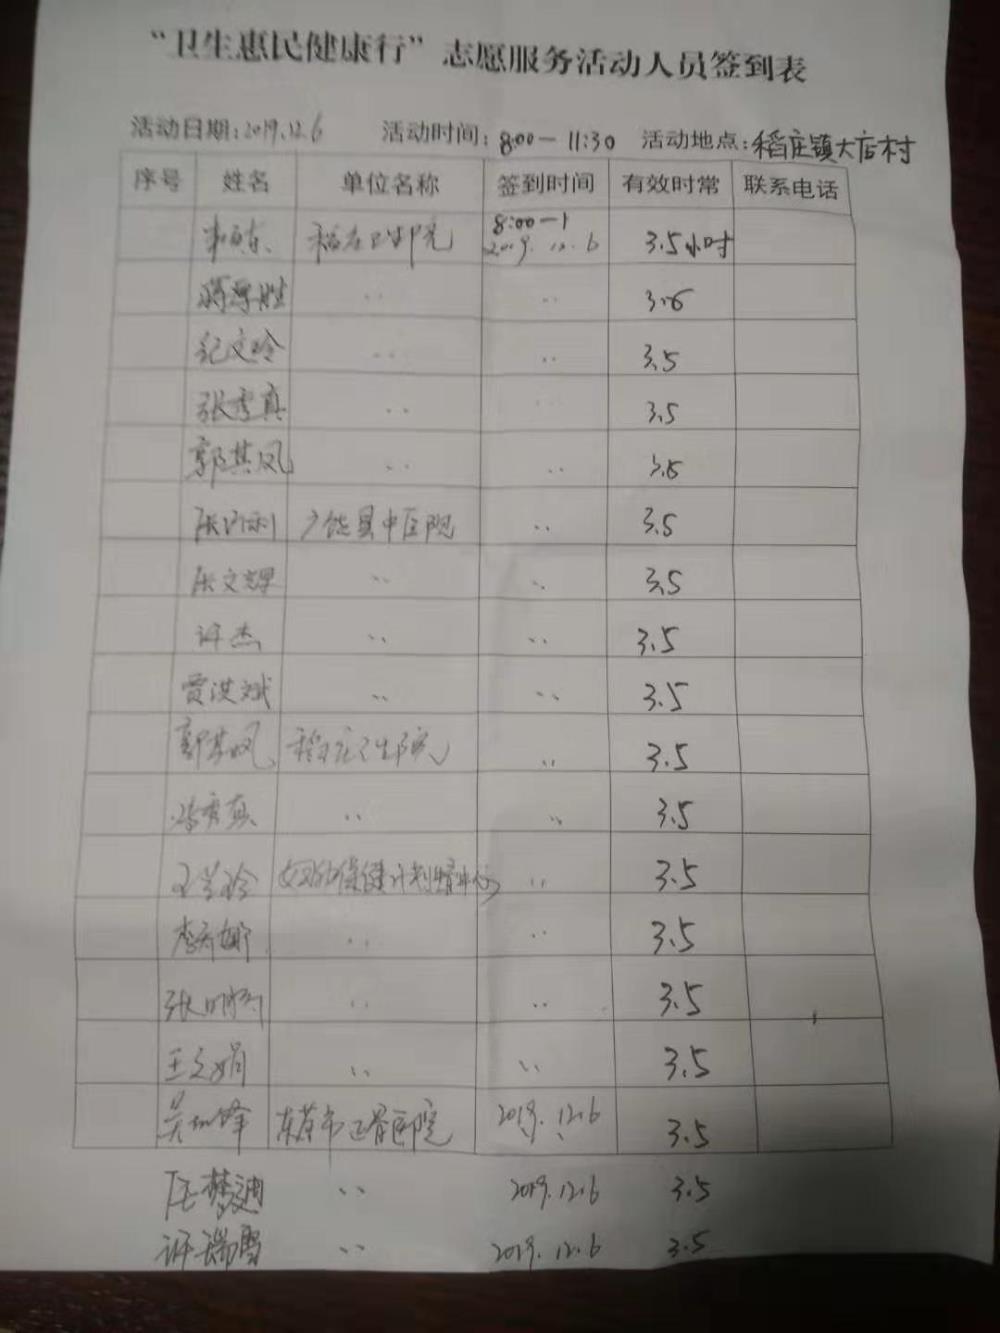 “卫生惠民健康行”志愿服务活动人员签到表
活动日期:2019.12.6 活动时间:8:00－11:30 活动地点:稻庄镇大店村
序号 姓名 单位名称 签到时间 有效时常 联系电话
稻庄卫生院 8:00－1 2019.12.6 3.5小时
蒋 胜 〃 〃 3.5
纪文玲 〃 〃 3.5
张秀真 〃 〃 3.5
郭其凤 〃 〃 3.5
广饶县中医院 〃 3.5
张文 〃 〃 3.5
许杰 〃 〃 3.5
贾洪斌 〃 〃 3.5
郭其凤 稻庄卫生院 〃 3.5
秀真 〃 〃 3.5
王 玲 妇幼保健计划生育中心 〃 3.5
李 娜 〃 〃 3.5
张明 〃 〃 3.5
王文娟 〃 〃 3.5
吴 锋 东营市正骨医院 2019.12.6 3.5
梦迪 〃 2019.12.6 3.5
许瑞雪 〃 2019.12.6 3.5